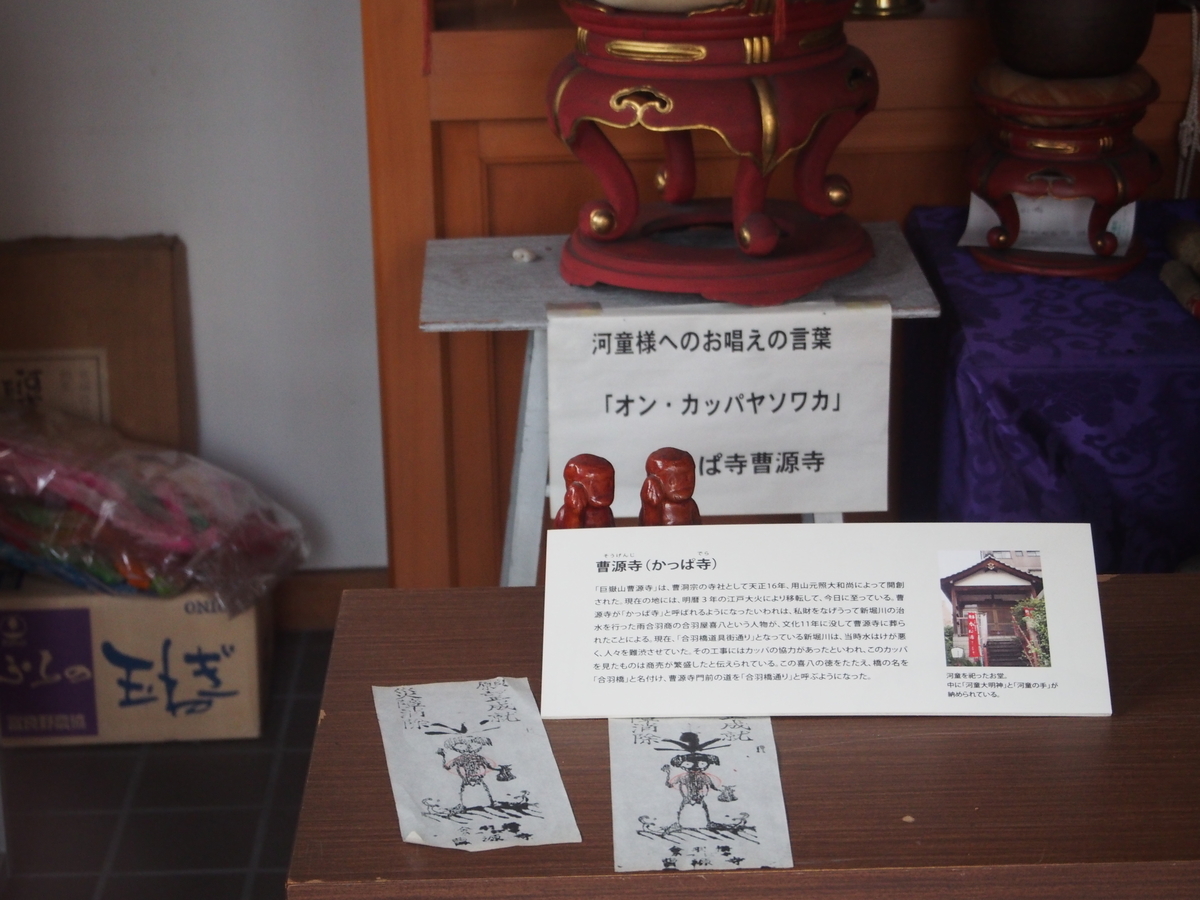 河童様へのお唱えの言葉
「オン・カッパヤソワカ」
ぱ寺曹源寺
曹源寺(かっぱ寺)
そうげんじ
でら
「巨嶽山曹源寺」は、曹洞宗の寺社として天正16年、用山元照大和尚によって開創
された。現在の地には、明暦3年の江戸大火により移転して、今日に至っている。曹
源寺が「かっぱ寺」と呼ばれるようになったいわれは、私財をなげうって新堀川の治
水を行った雨合羽商の合羽屋喜八という人物が、文化11年に没して曹源寺に葬ら
れたことによる。現在、「合羽橋道具街通り」となっている新堀川は、当時水はけが悪
く、人々を難渋させていた。その工事にはカッパの協力があったといわれ、このカッパ
を見たものは商売が繁盛したと伝えられている。この喜八の徳をたたえ、橋の名を
「合羽橋」と名付け、曹源寺門前の道を「合羽橋通り」と呼ぶようになった。
河童を祀ったお堂。
中に「河童大明神」と「河童の手」が
納められている。
成就
災障消除
成就
消除
源寺
ONIO
ふらの
玉ねぎ
富良野農協